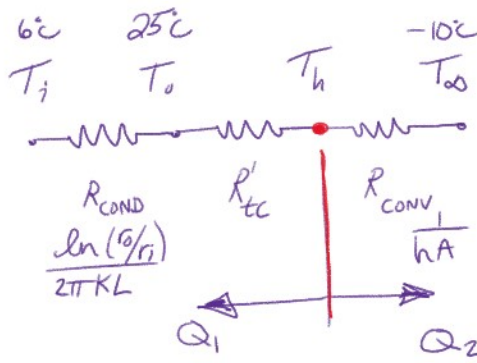 6°C 25°C -10°C
T_i T_o T_h T_∞
R_COND R'_tc R_CONV
ln(r_o/r_i) / 2πKL
1 / hA
Q_1 Q_2